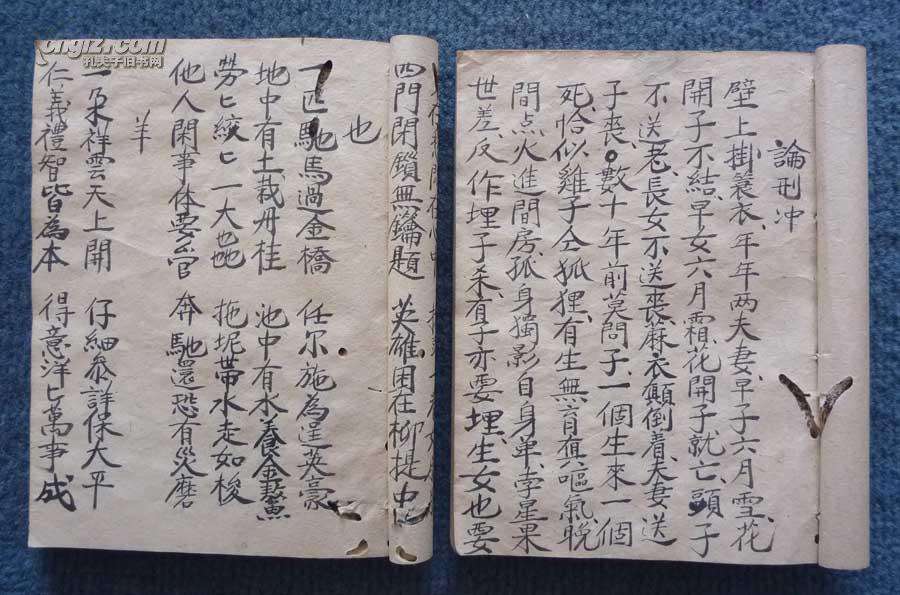 論刑冲
壁上掛簑衣、年年两夫妻、早子六月雪、花
開子不結、早女六月霜、花開子就亡、頭子
不送老、長女不送喪、麻衣顛倒着、夫妻送
子喪。數十年前莫問子、一個生來一個
死、恰似雞子仝狐狸、有生無育真嘔氣、晚
間点火進間房、孤身獨影自身单、孛星果
世差、反作埋子杀、有子亦要埋、生女也要
四門閉鎖無鑰題 英雄困在柳提中
也
一匹馳馬過金橋 任尔施為逞英豪
地中有土栽丹桂 池中有水養金鰲
勞匕絞匕一大 拖坭帶水走如梭
他人閑事休要管 奔馳還恐有災磨
羊
一朶祥雲天上開 仔細叅詳保太平
仁義禮智皆為本 得意洋匕萬事成
孔夫子旧书网